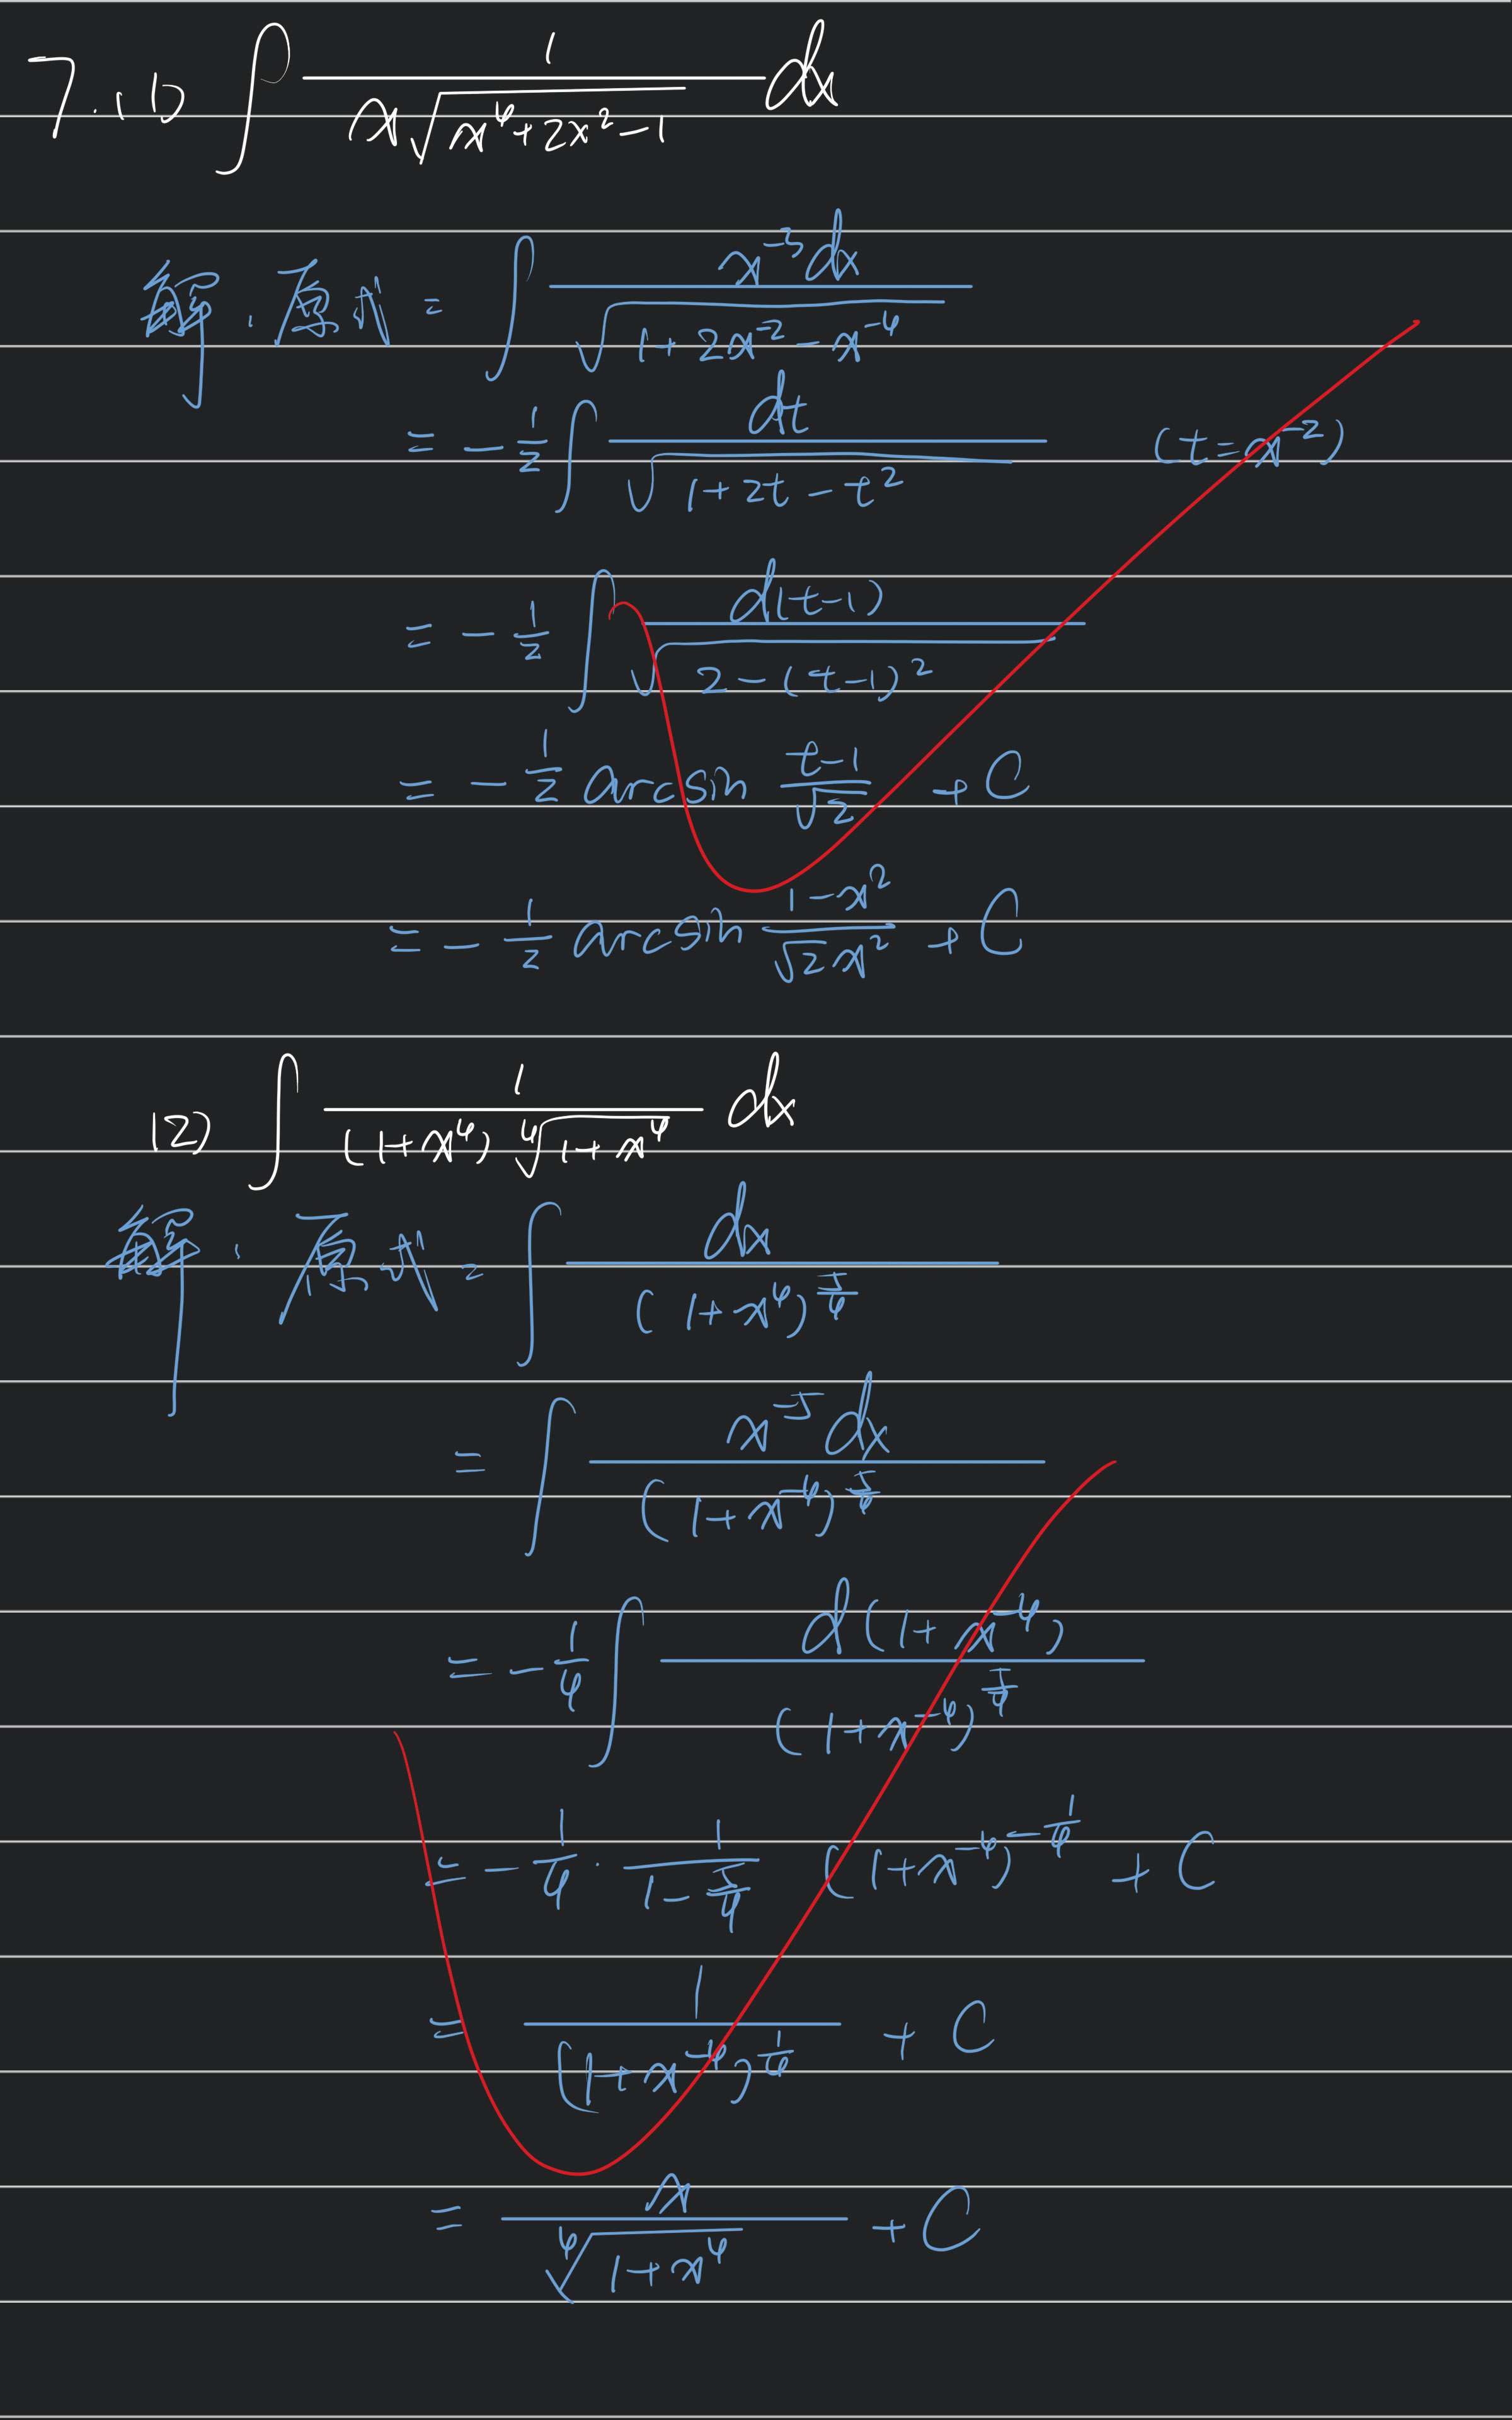 7. (1) ∫ 1/(x√(x⁴+2x²-1)) dx
解: 原式 = ∫ x⁻³dx/√(1+2x⁻²-x⁻⁴)
= -1/2 ∫ dt/√(1+2t-t²) (t=x⁻²)
= -1/2 ∫ d(t-1)/√(2-(t-1)²)
= -1/2 arcsin (t-1)/√2 + C
= -1/2 arcsin (1-x²)/(√2x²) + C
(2) ∫ 1/((1+x⁴)⁴√(1+x⁴)) dx
解: 原式 = ∫ dx/(1+x⁴)^(5/4)
= ∫ x⁻⁵dx/(1+x⁻⁴)^(5/4)
= -1/4 ∫ d(1+x⁻⁴)/(1+x⁻⁴)^(5/4)
= -1/4 · 1/(1-5/4) (1+x⁻⁴)^(-1/4) + C
= 1/(1+x⁻⁴)^(1/4) + C
= x/⁴√(1+x⁴) + C